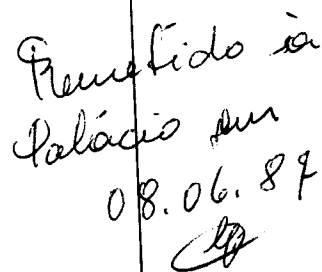 Remetido à
Palácio em
08.06.87